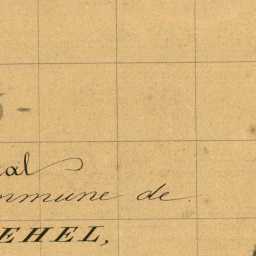 al
ommune de
EHEL,